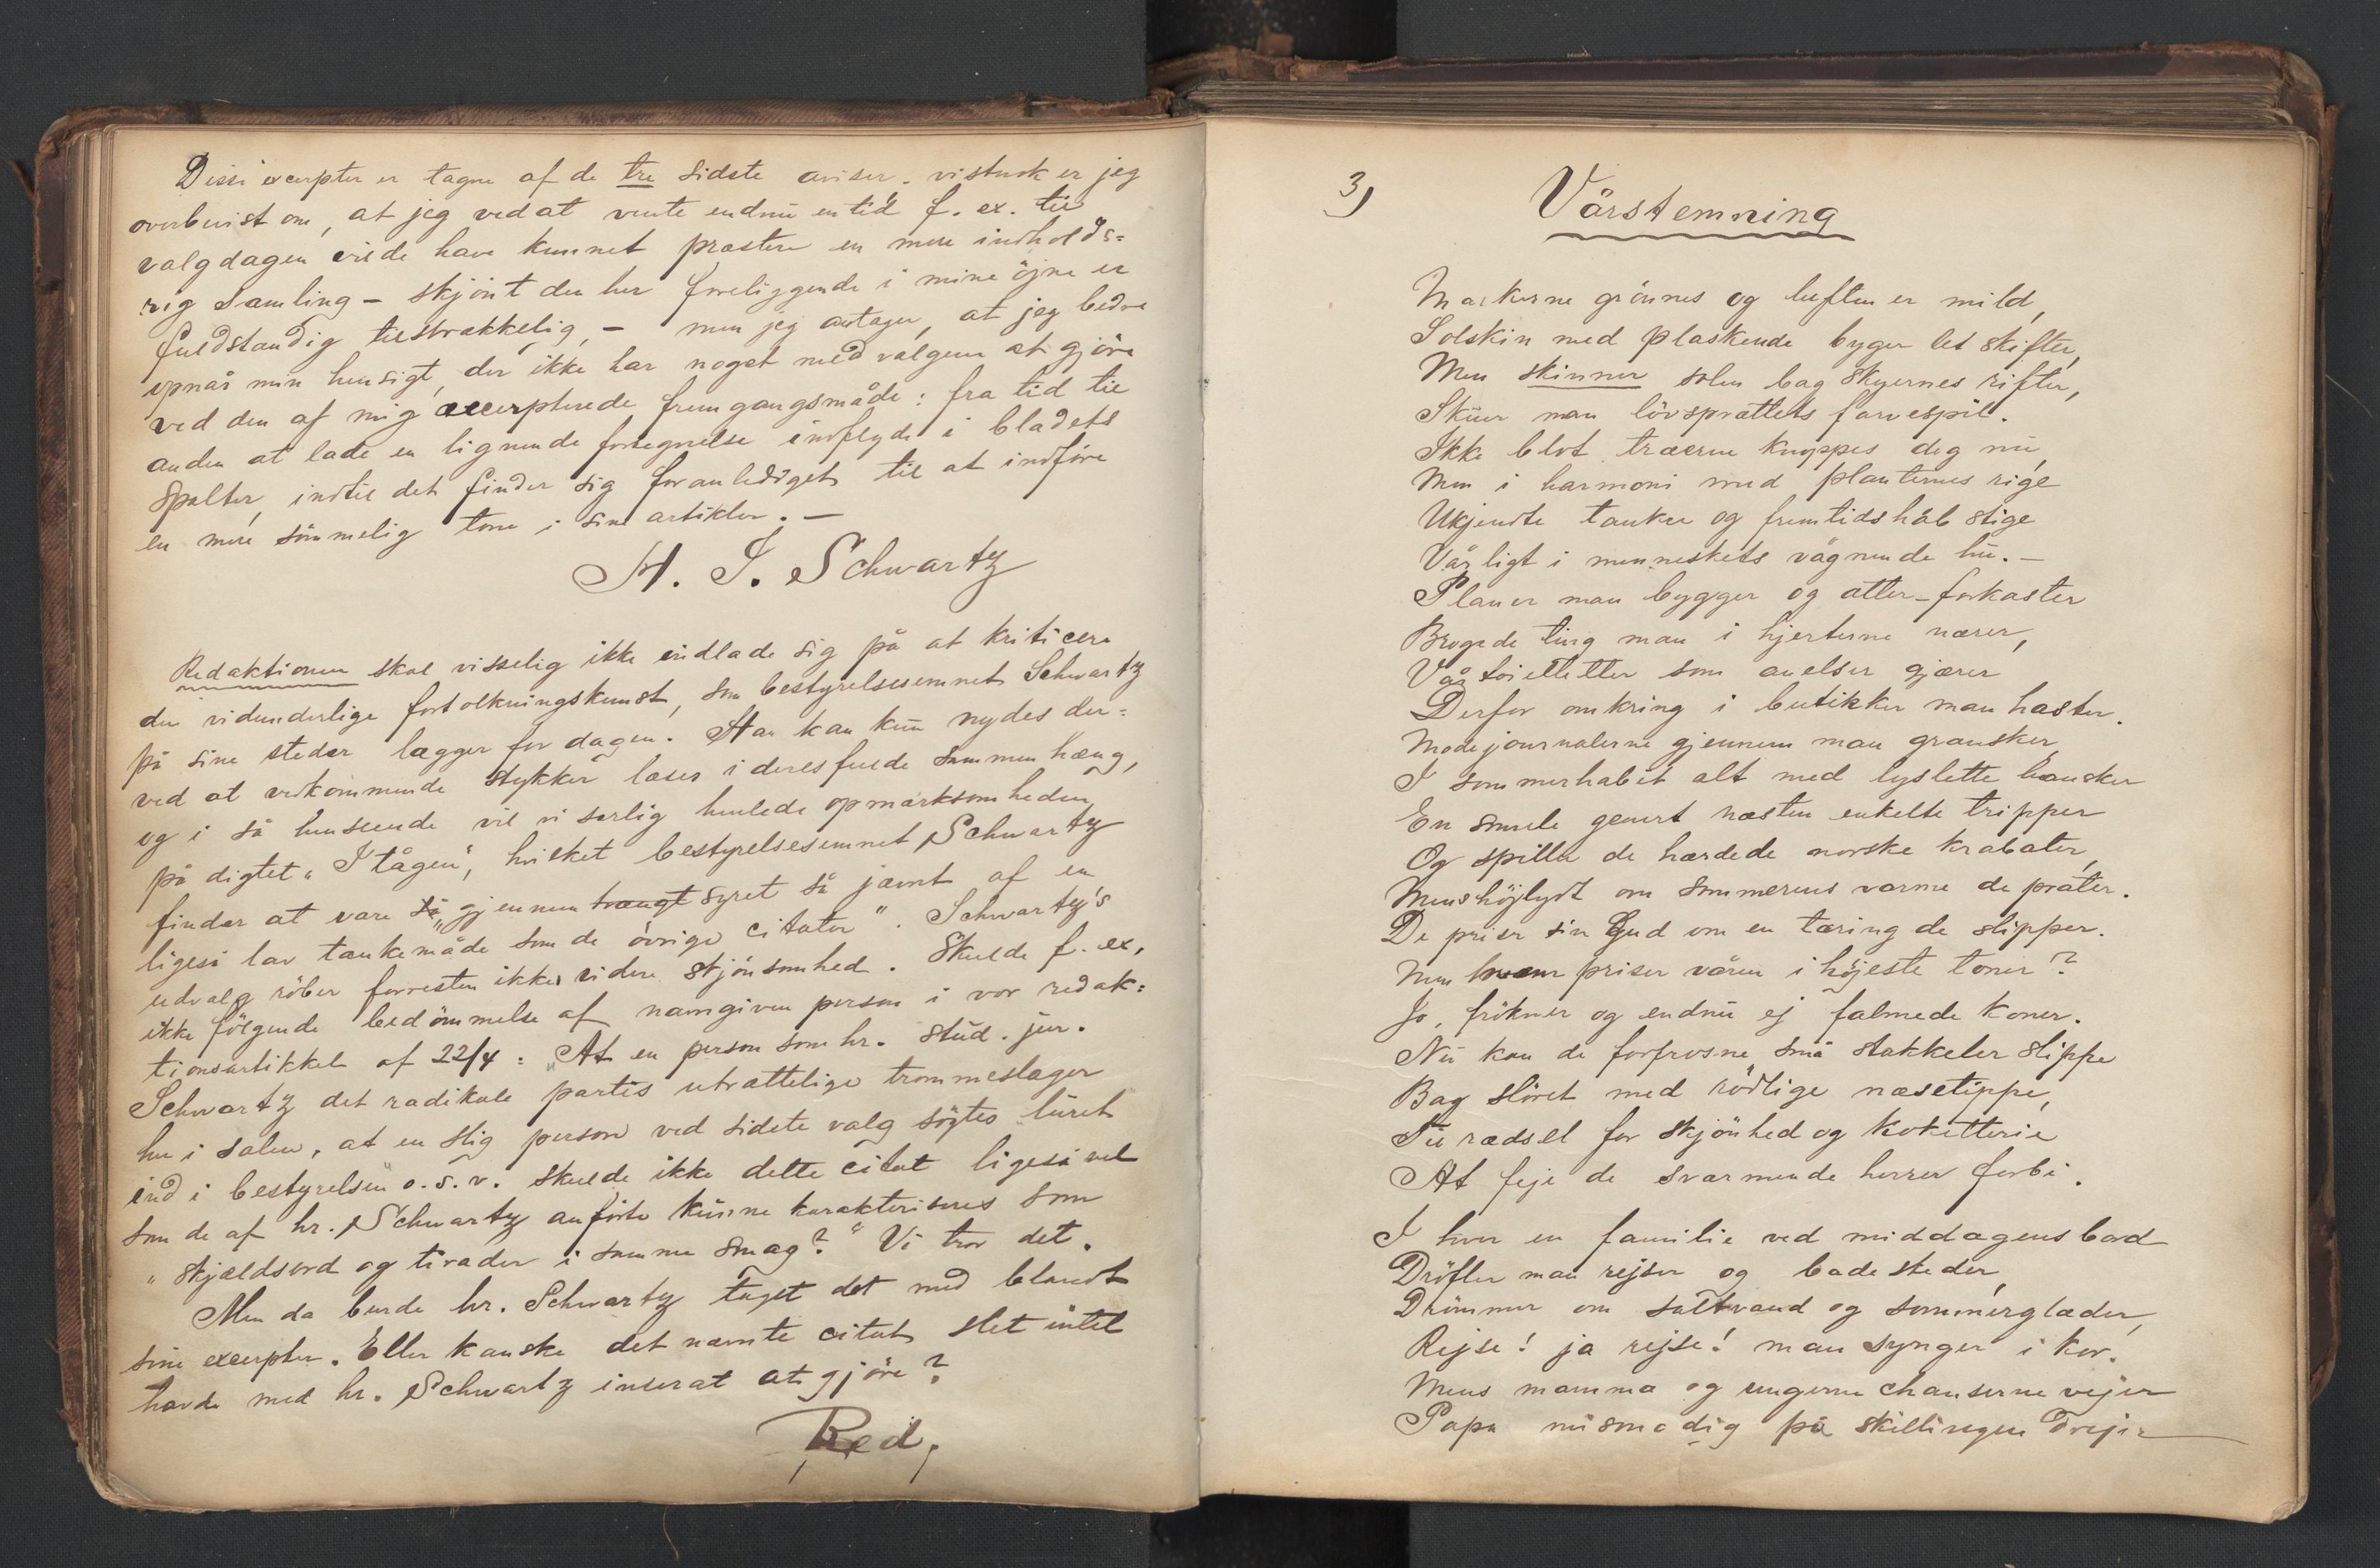 Disse excerpter er tagne af de tre sidste aviser. vistnok er jeg
overbevist om, at jeg ved at vente endnu en tid f. ex. til
valgdagen vilde have kunnet præstere en mere indholds=
rig samling - skjønt den her foreliggende i mine öjne er
fuldstændig tilstrækkelig, - men jeg antager, at jeg bedre
opnår min hensigt, der ikke har noget med valgene at gjöre
ved den af mig excerpterede fremgangsmåde: fra tid til
anden at lade en lignende fortegnelse indflyde i bladets
spalter, indtil det finder sig foranlediget til at indföre
en mere sömmelig tone i sine artikler. -
H. J. Schwartz
Redaktionen skal visselig ikke indlade sig på at kriticere
den vidunderlige fortolkningskunst, som bestyrelsesemnet Schwartz
på sine steder lægger for dagen. Han kan kun nydes der=
ved at vedkommende stykker læses i deres fulde sammenhæng,
og i så henseende vil vi særlig henlede opmærksomheden
på digtet "I tågen", hvilket bestyrelsesemnet Schwartz
finder at være så "gjennem trængt syret så jævnt af en
ligeså lav tankemåde som de övrige citater". Schwartz's
udvalg röber forresten ikke videre skjönsomhed. Skulde f. ex.
ikke fölgende bedömmelse af navngiven person i vor redak=
tionsartikkel af 22/4: "At en person som hr. stud. jur.
Schwartz det radikale partis utrættelige trommeslager
her i salen, at en slig person ved sidste valg sögtes luret
ind i bestyrelsen" o.s.v. skulde ikke dette citat ligeså vel
som de af hr. Schwartz anförte kunne karakteriseres som
"skjældsord og tirader i samme smag?" Vi tror det.
Men da burde hr. Schwartz taget det med blandt
sine excerpter. Eller kanske det nævnte citat slet intet
havde med hr. Schwartz inserat at gjöre?
Red.
3)
Vårstemning
Markerne grönnes og luften er mild,
Solskin med plaskende byger let skifter,
Men skinner solen bag skyernes rifter,
Skuer man lövsprættets farvespil.
Ikke blot træerne knoppes dog nu,
Men i harmoni med planternes rige
Ukjendte tanker og fremtidshåb stige
Vårligt i menneskets vågnende hu. -
Planer man bygger og atter forkaster
Brogede ting man i hjerterne nærer,
Vårtoiletter som anelser gjærer
Derfor omkring i butikker man haster.
Modejournalerne gjennem man gransker,
I sommerhabit alt med lyslette hansker
En smule genert næsten enkelte tripper
Og spiller de hærdede norske krabater,
Mens höjlydt om sommerens varme de prater.
De priser sin Gud om en tæring de slipper.
Men hvem priser våren i höjeste toner?
Jo, frökner og endnu ej falmede koner.
Nu kan de forfrosne små stakkeler slippe
Bag slöret med rödlige næsetippe,
Til rædsel for skjönhed og koketteri
At feje de sværmende herrer forbi.
I hver en familie ved middagens bord
Dröfter man rejser og badesteder,
Drömmer om saltvand og sommerglæder,
Rejse! ja rejse! man synger i kor.
Mens mamma og ungerne chanserne vejer
Papa mismodig på skillingen drejer